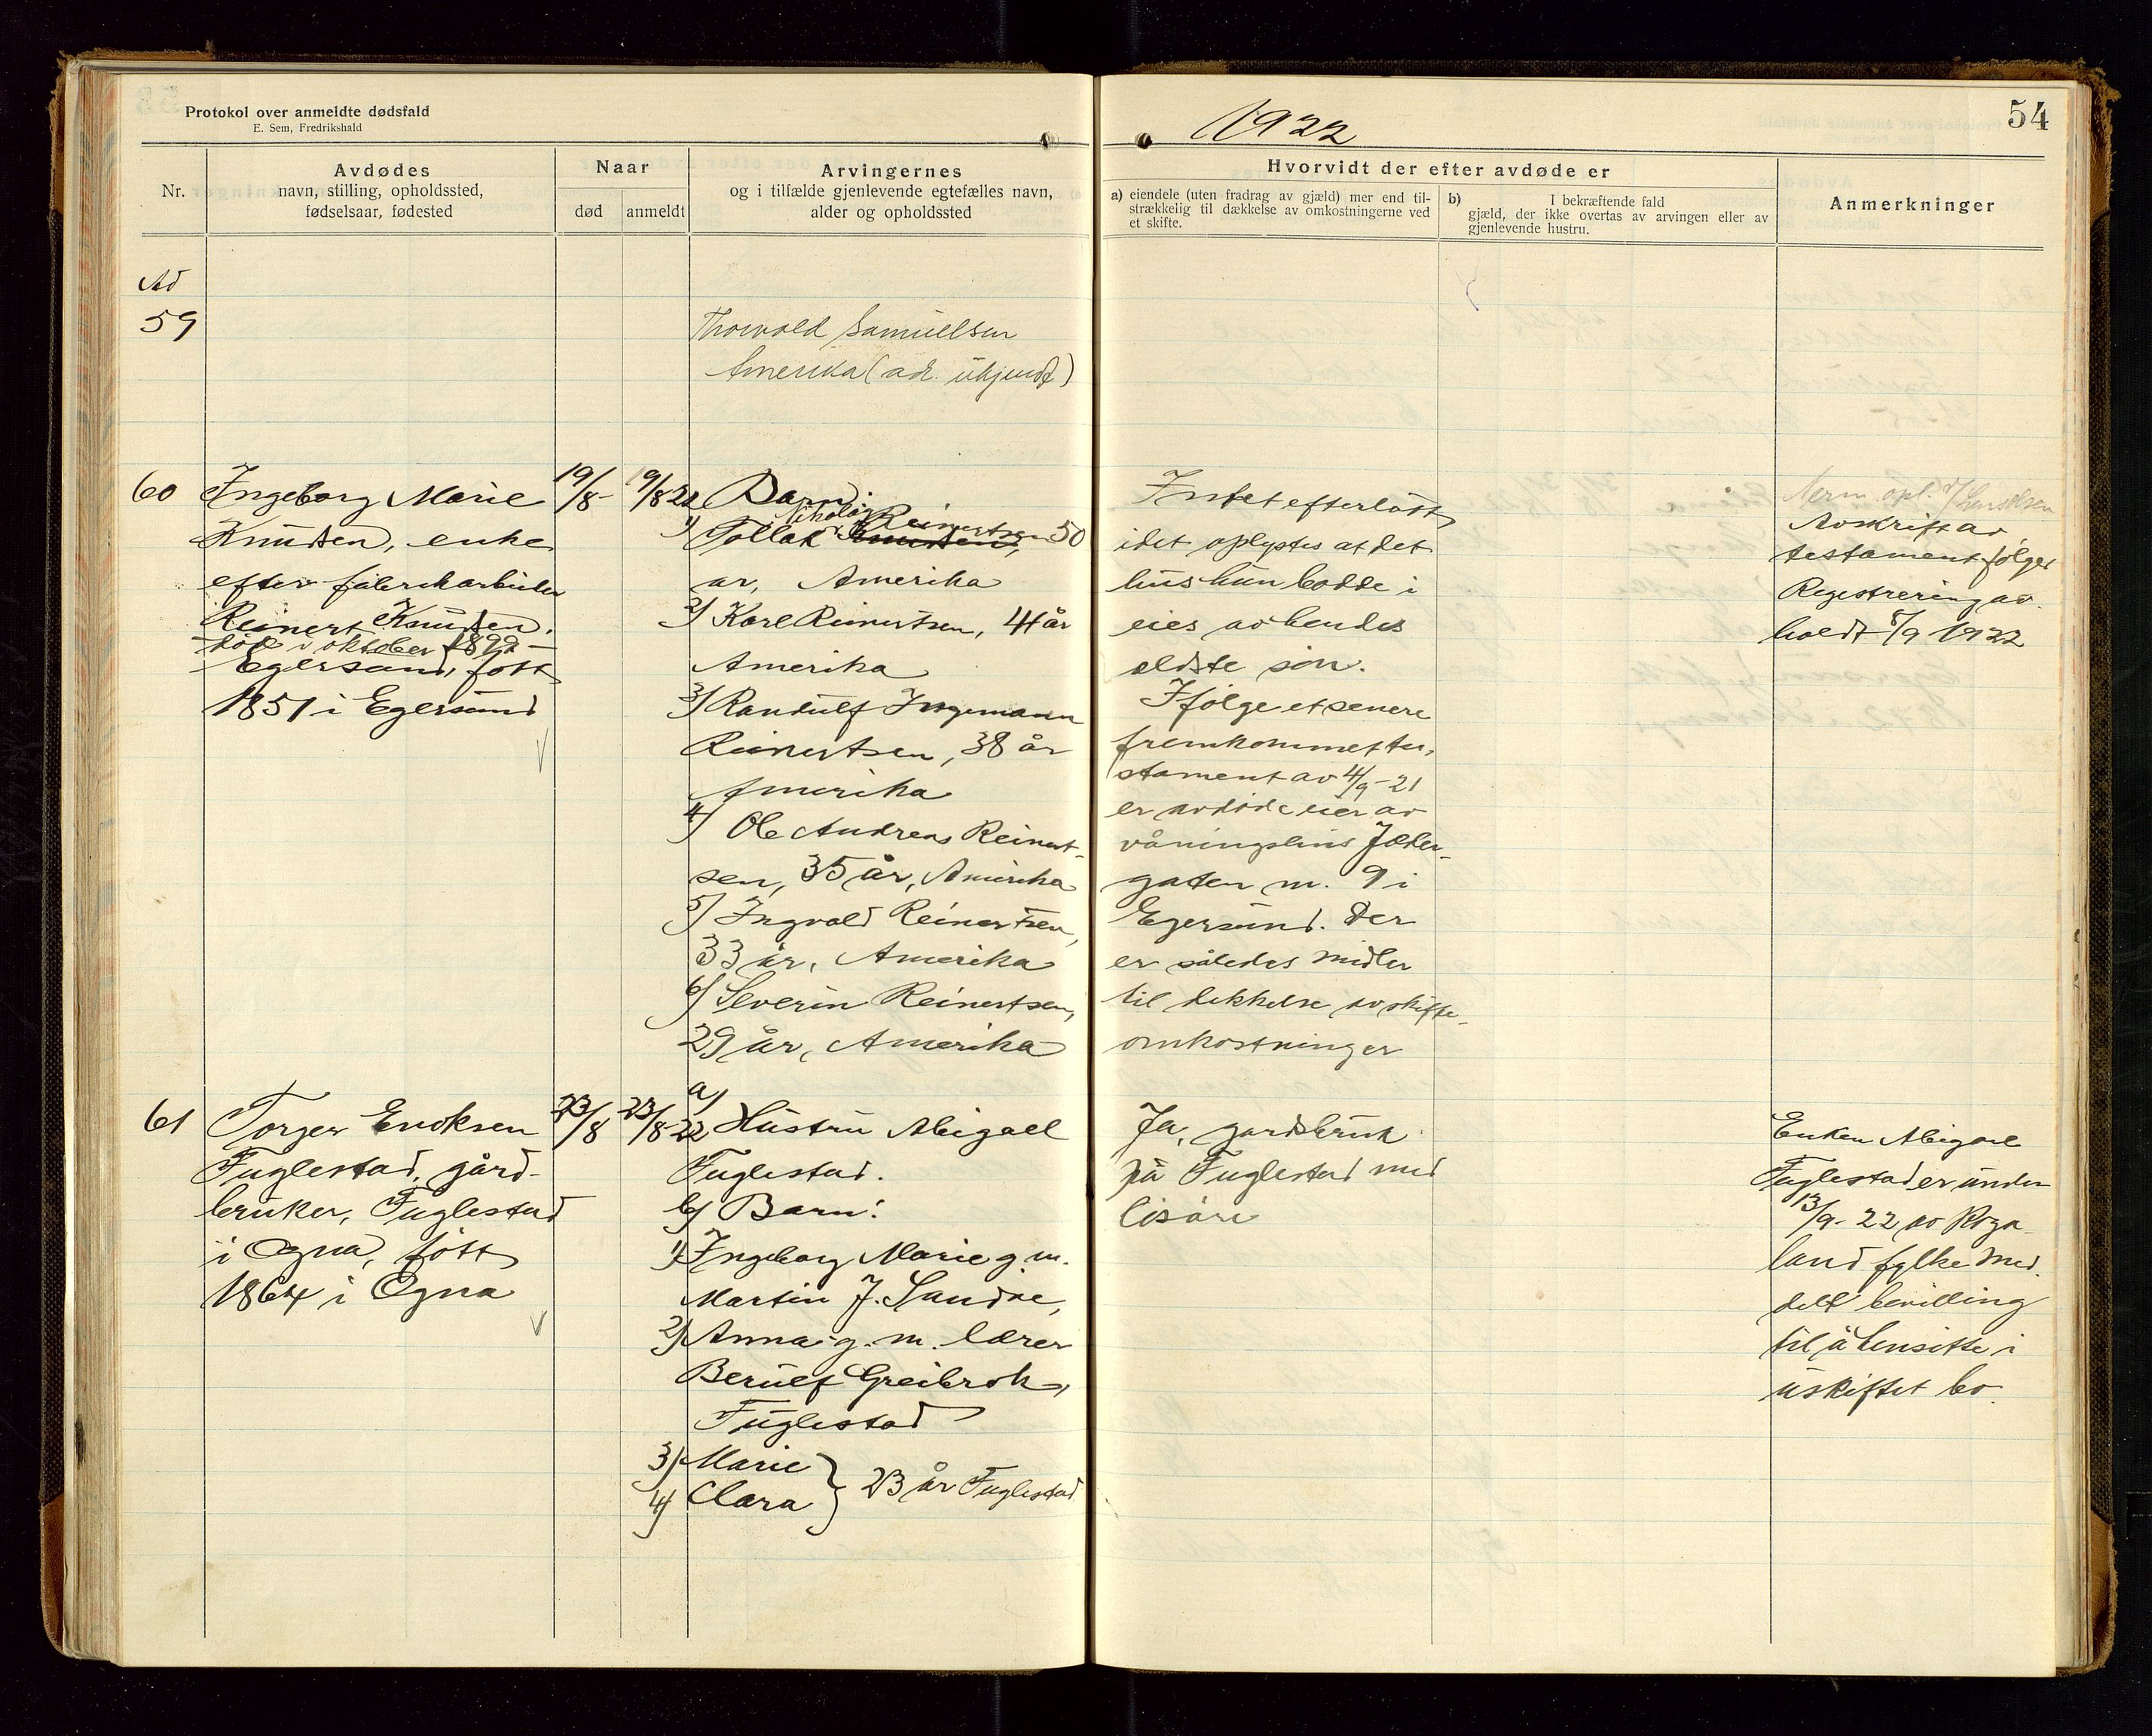 Protokol over anmeldte dødsfald
E. Sem, Fredrikshald
1922
54
Nr.
Avdødes
navn, stilling, opholdssted,
fødselsaar, fødested
Naar
død
anmeldt
Arvingernes
og i tilfælde gjenlevende egtefælles navn,
alder og opholdssted
Hvorvidt der efter avdøde er
a) eiendele (uten fradrag av gjæld) mer end til-
strækkelig til dækkelse av omkostningerne ved
et skifte.
b) I bekræftende fald
gjæld, der ikke overtas av arvingen eller av
gjenlevende hustru.
Anmerkninger
Ad
59
Thorvald Samuelsen
Amerika (adr. ukjendt)
60
Ingeborg Marie
Knudsen, enke
efter fabrikarbeider
Reinert Knudsen,
död i oktober 1899 -
Egersund, født
1851 i Egersund
19/8-
19/8 22
Barn:
Nikolai Reinertsen
1) Tollak Knudsen, 50
år, Amerika
2) Karl Reinertsen, 41 år
Amerika
3) Randulf Ingemann
Reinertsen, 38 år
Amerika
4) Ole Andreas Reinert-
sen, 35 år, Amerika
5) Ingvald Reinertsen,
33 år, Amerika
6) Severin Reinertsen,
29 år, Amerika
Intet efterlatt
idet oplystes at det
hus hun bodde i
eies av hendes
eldste søn.
Ifølge et senere
fremkommet te-
stament av 4/9-21
er avdøde eier av
våningshus Jæder-
gaten nr. 9 i
Egersund. Der
er således midler
til dekkelse av skifte-
omkostninger
Avskrift av
testament følger
Registrering av-
holdt 8/9 1922
61
Torger Eriksen
Fuglestad, gård-
bruker, Fuglestad
i Ogna, født
1864 i Ogna
23/8
23/8 22
a)
Hustru Abigael
Fuglestad.
b) Barn:
1) Ingeborg Marie g. m.
Martin J. Sandve,
2) Anna g. m. lærer
Berulf Greibrok,
Fuglestad
3) Marie
4) Clara } 23 år Fuglestad
Ja, gardsbruk
på Fuglestad med
løsøre
Enken Abigael
Fuglestad er under
13/9-22 av Roga-
land fylke med-
delt bevilling
til å hensitte i
uskiftet bo.